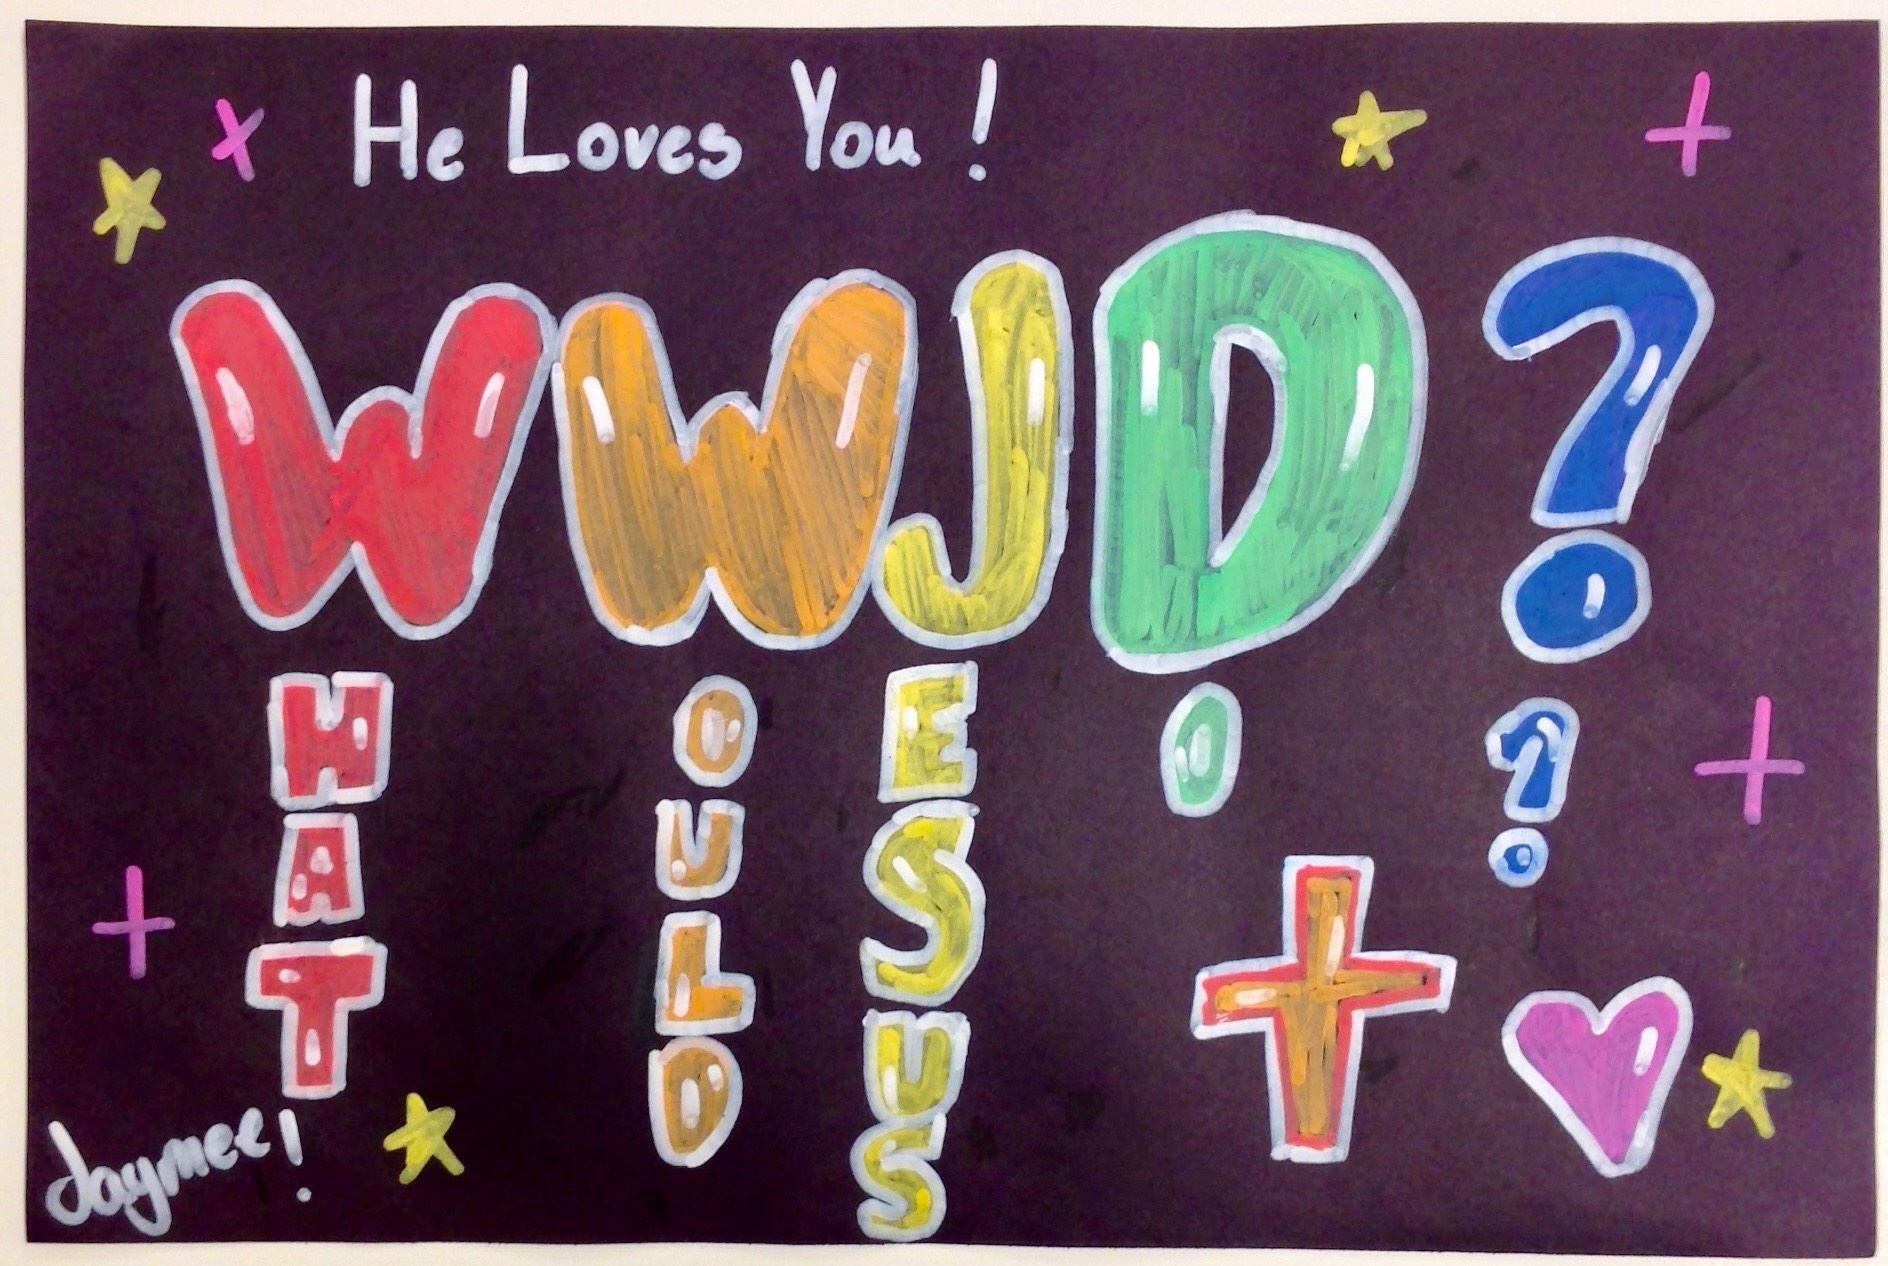 He Loves You!
WWJD?
HAT
OULD
ESUS
O
?
Jaymee!